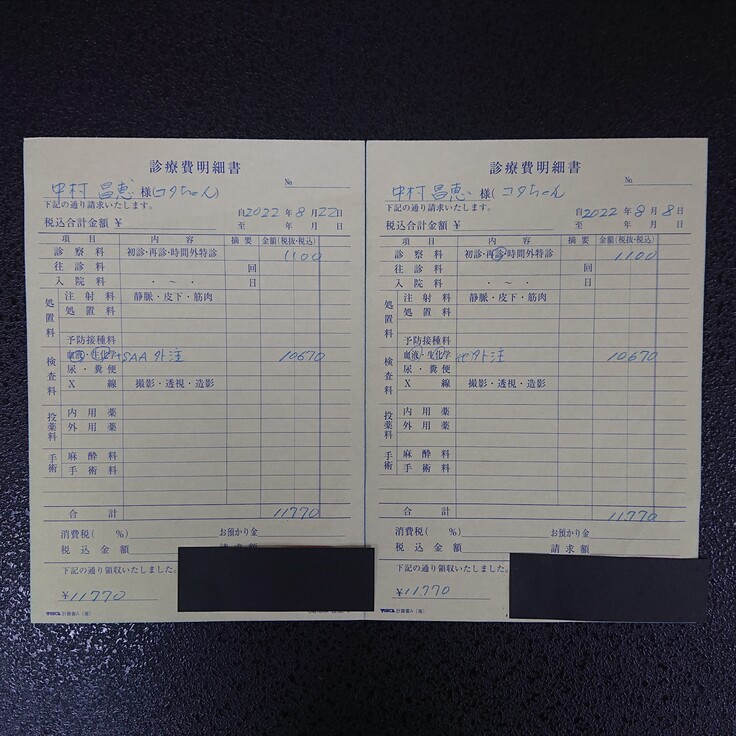 診療費明細書
№
中村 昌恵 様(コタちゃん)
下記の通り請求いたします。
自2022年8月22日
税込合計金額 ¥
至 年 月 日
項目 内容 摘要 金額(税抜・税込)
診察料 初診・再診・時間外特診 1100
往診料 回
入院料 ・ ~ ・ 日
処置料
注射料 静脈・皮下・筋肉
処置料
予防接種料
検査料
血液・生化学 +SAA 外注 10670
尿・糞便
X線 撮影・透視・造影
投薬料
内用薬
外用薬
手術
麻酔料
手術料
合計 11770
消費税( %) お預かり金
税込金額 請求額
下記の通り領収いたしました。
¥11770
計算書A(複)
診療費明細書
№
中村 昌恵 様(コタちゃん
下記の通り請求いたします。
自2022年8月8日
税込合計金額 ¥
至 年 月 日
項目 内容 摘要 金額(税抜・税込)
診察料 初診・再診・時間外特診 1100
往診料 回
入院料 ・ ~ ・ 日
処置料
注射料 静脈・皮下・筋肉
処置料
予防接種料
検査料
血液・生化学 他外注 10670
尿・糞便
X線 撮影・透視・造影
投薬料
内用薬
外用薬
手術
麻酔料
手術料
合計 11770
消費税( %) お預かり金
税込金額 請求額
下記の通り領収いたしました。
¥11770
計算書A(複)